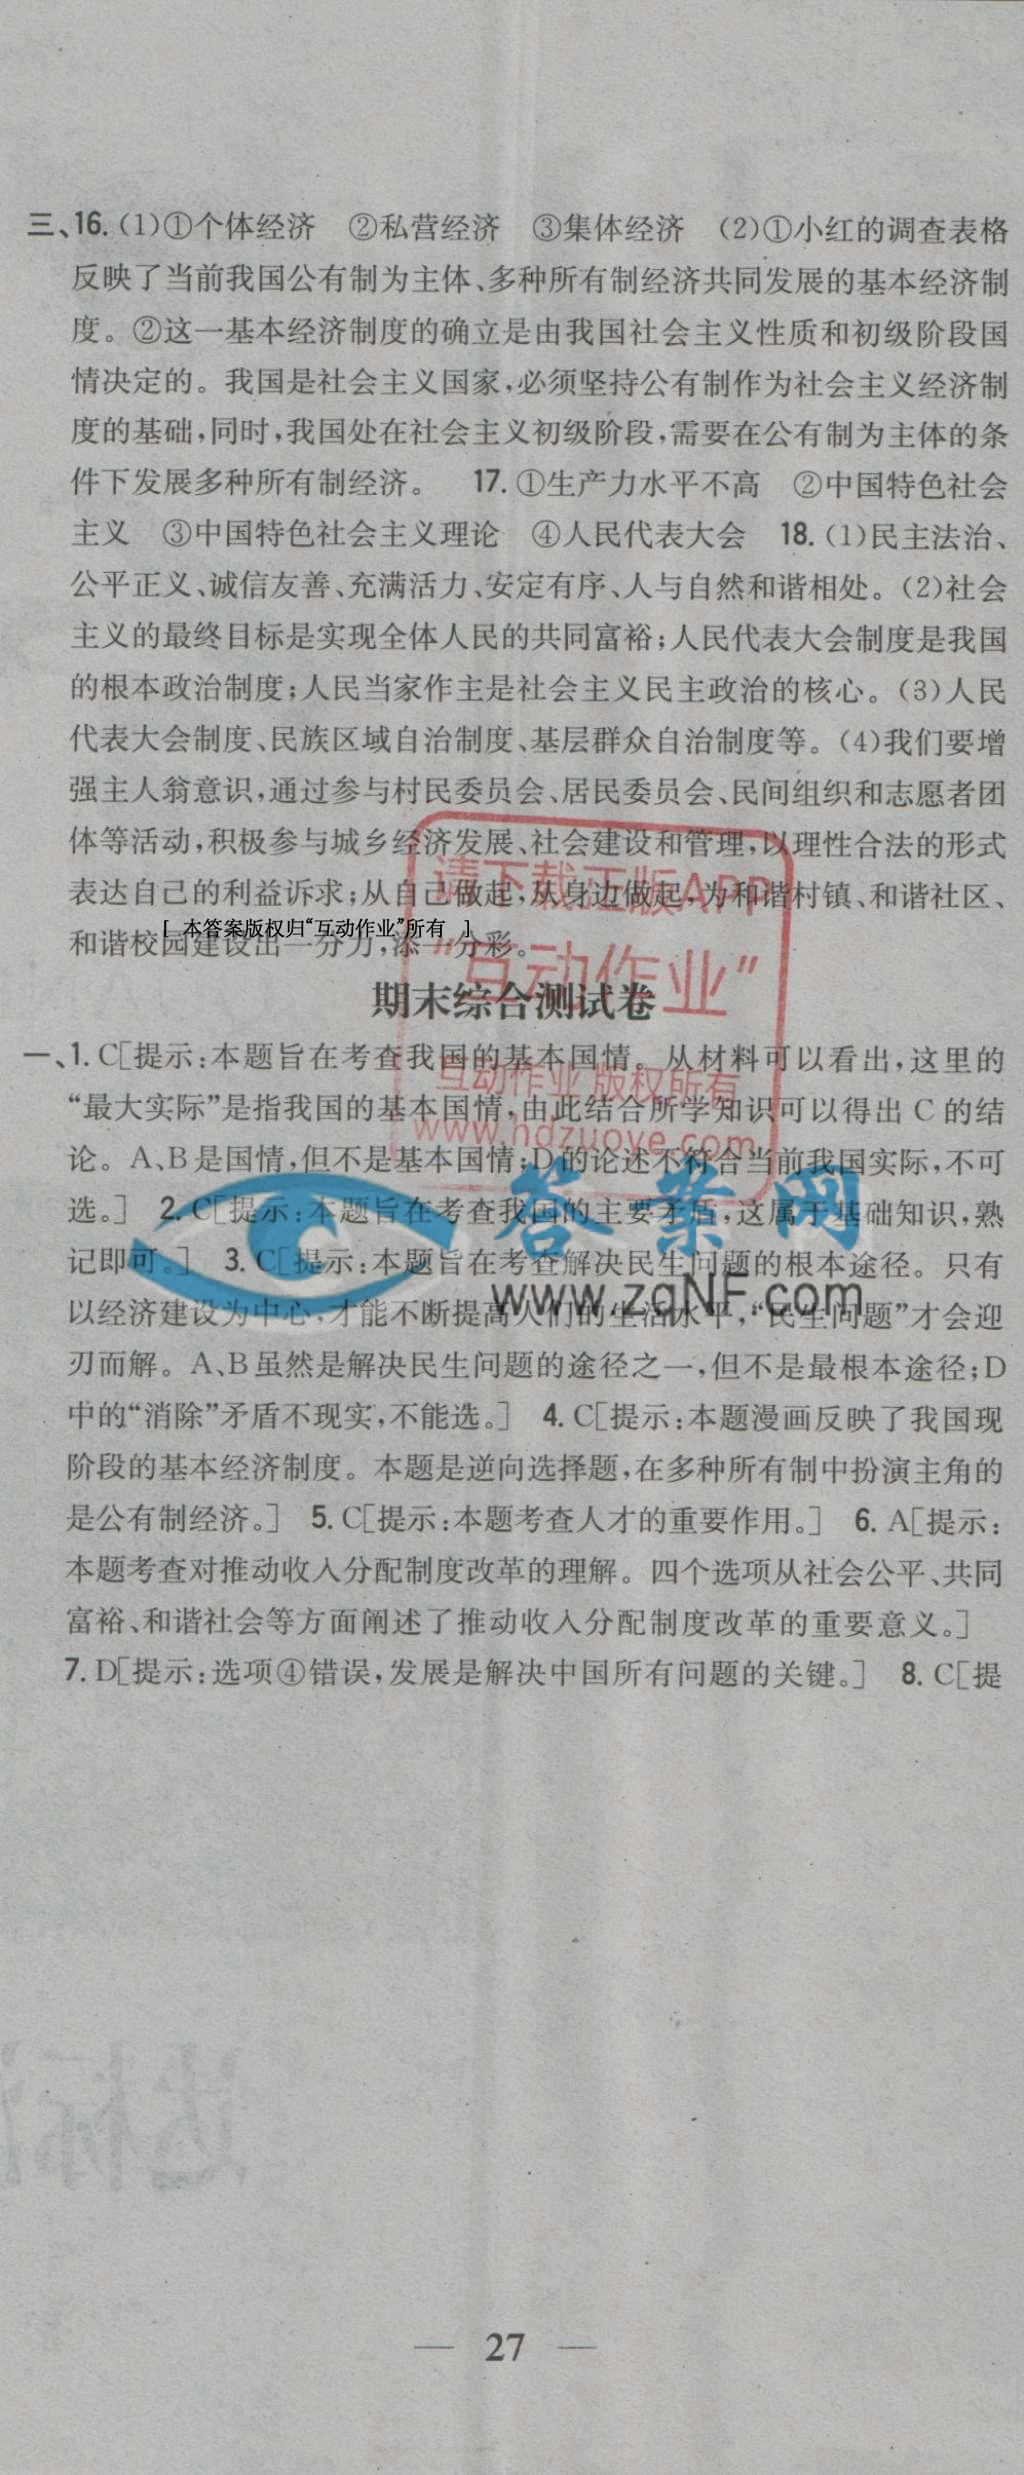 三、16. (1)①个体经济　②私营经济　③集体经济　(2)①小红的调查表格
反映了当前我国公有制为主体、多种所有制经济共同发展的基本经济制
度。②这一基本经济制度的确立是由我国社会主义性质和初级阶段国
情决定的。我国是社会主义国家,必须坚持公有制作为社会主义经济制
度的基础,同时,我国处在社会主义初级阶段,需要在公有制为主体的条
件下发展多种所有制经济。　17. ①生产力水平不高　②中国特色社会
主义　③中国特色社会主义理论　④人民代表大会　18. (1)民主法治、
公平正义、诚信友善、充满活力、安定有序、人与自然和谐相处。(2)社会
主义的最终目标是实现全体人民的共同富裕;人民代表大会制度是我国
的根本政治制度;人民当家作主是社会主义民主政治的核心。(3)人民
代表大会制度、民族区域自治制度、基层群众自治制度等。(4)我们要增
强主人翁意识,通过参与村民委员会、居民委员会、民间组织和志愿者团
体等活动,积极参与城乡经济发展、社会建设和管理,以理性合法的形式
表达自己的利益诉求;从自己做起,从身边做起,为和谐村镇、和谐社区、
和谐校园建设出一分力,添一分彩。
[ 本答案版权归“互动作业”所有 ]
请下载正版APP
“互动作业”
互动作业 版权所有
www.hdzuoye.com
期末综合测试卷
一、1. C[提示:本题旨在考查我国的基本国情。从材料可以看出,这里的
“最大实际”是指我国的基本国情,由此结合所学知识可以得出 C 的结
论。A、B是国情,但不是基本国情;D的论述不符合当前我国实际,不可
选。]　2. C[提示:本题旨在考查我国的主要矛盾,这属于基础知识,熟
记即可。]　3. C[提示:本题旨在考查解决民生问题的根本途径。只有
以经济建设为中心,才能不断提高人们的生活水平,“民生问题”才会迎
刃而解。A、B虽然是解决民生问题的途径之一,但不是最根本途径;D
中的“消除”矛盾不现实,不能选。]　4. C[提示:本题漫画反映了我国现
阶段的基本经济制度。本题是逆向选择题,在多种所有制中扮演主角的
是公有制经济。]　5. C[提示:本题考查人才的重要作用。]　6. A[提示:
本题考查对推动收入分配制度改革的理解。四个选项从社会公平、共同
富裕、和谐社会等方面阐述了推动收入分配制度改革的重要意义。]
7. D[提示:选项④错误,发展是解决中国所有问题的关键。]　8. C[提
答案网
www.zqNF.com
— 27 —